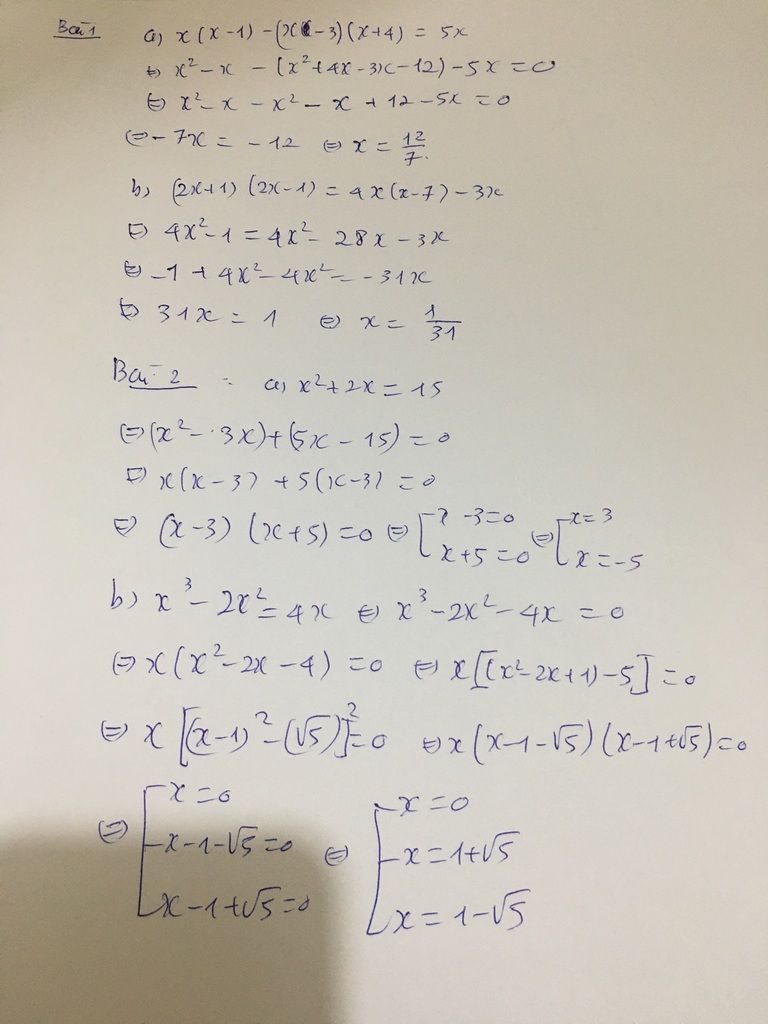 Bài 1 a) x(x-1)-(x-3)(x+4) = 5x
⇔ x² - x - (x²+4x-3x-12)-5x = 0
⇔ x² - x - x² - x + 12 - 5x = 0
⇔ -7x = -12 ⇔ x = 12/7.
b) (2x+1)(2x-1) = 4x(x-7)-3x
⇔ 4x²-1 = 4x²- 28x - 3x
⇔ -1 + 4x² - 4x² = -31x
⇔ 31x = 1 ⇔ x = 1/31
Bài 2 : a) x²+2x = 15
⇔ (x² - 3x)+(5x - 15) = 0
⇔ x(x-3) + 5(x-3) = 0
⇔ (x-3)(x+5) = 0 ⇔ [x-3=0 ⇔ [x=3
x+5=0 x=-5
b) x³ - 2x² = 4x ⇔ x³ - 2x² - 4x = 0
⇔ x(x²-2x-4) = 0 ⇔ x[(x²-2x+1)-5] = 0
⇔ x[(x-1)²-(√5)]² = 0 ⇔ x(x-1-√5)(x-1+√5) = 0
⇔ [x=0 ⇔ [x=0
x-1-√5=0 x=1+√5
x-1+√5=0 x=1-√5